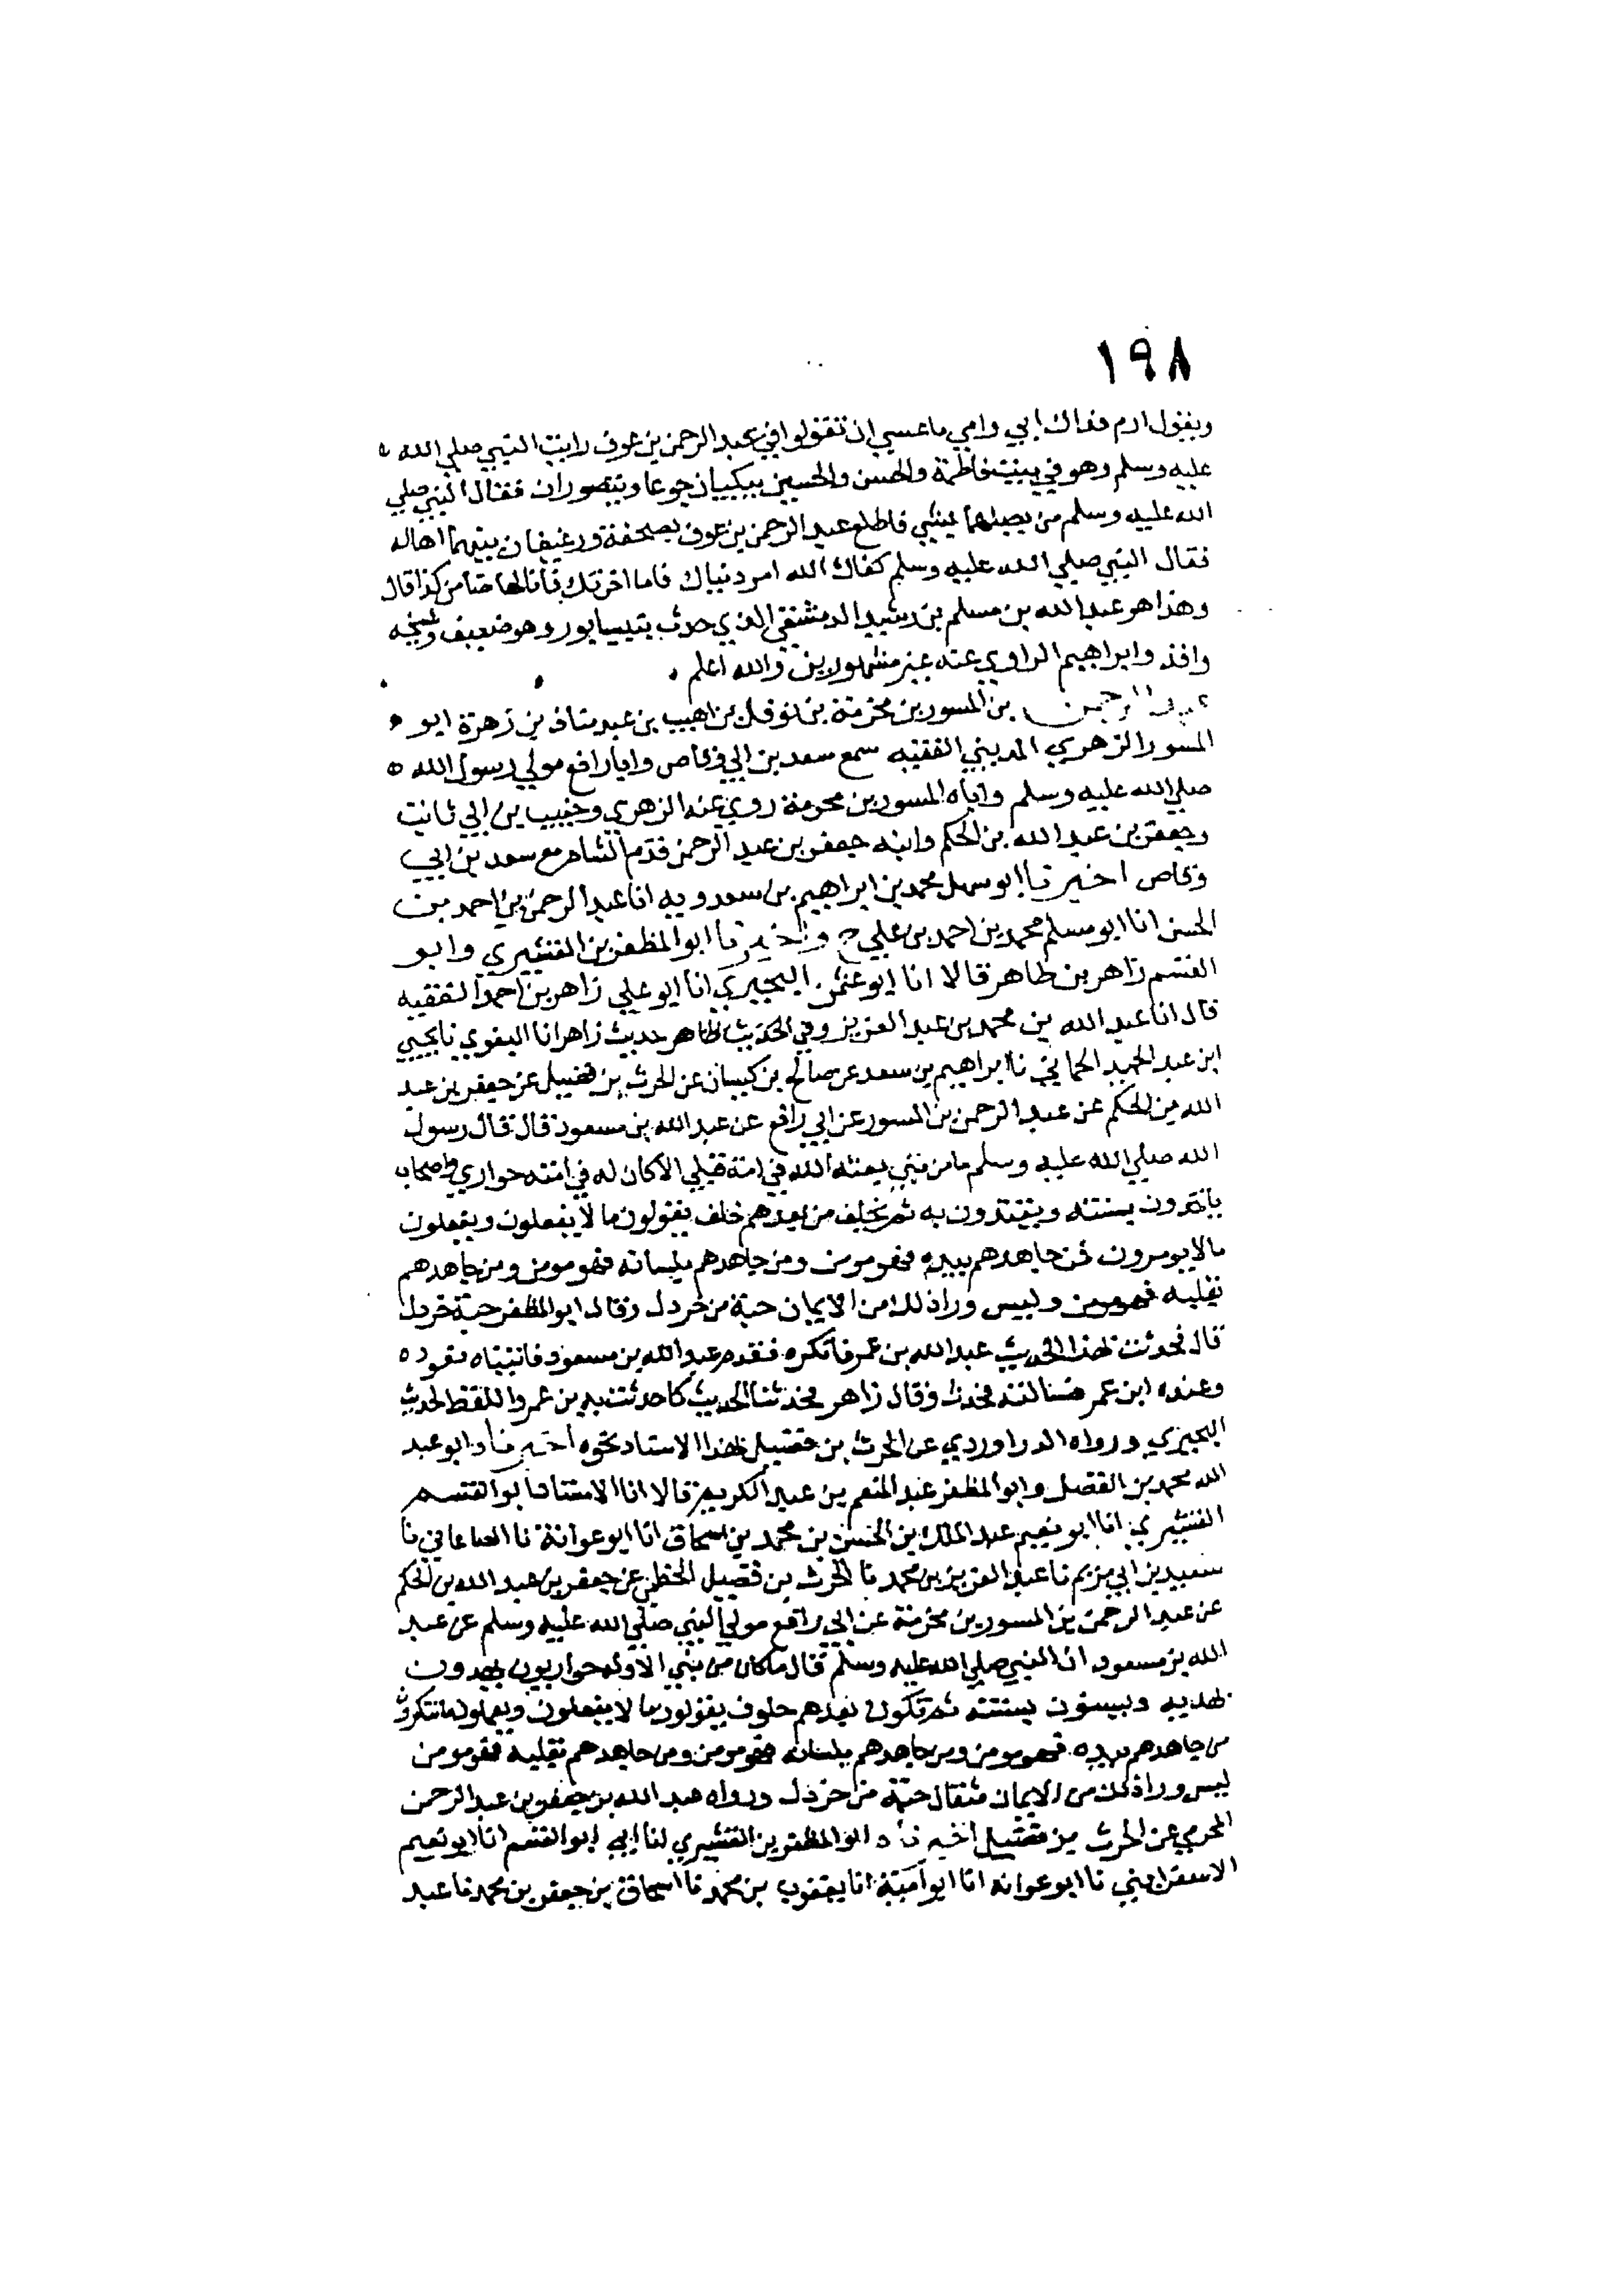 ١٩٨
ويقول ارم فداك ابي وامي ما عسي ان تقولوا في عبد الرحمن بن عوف رايت النبي صلي الله
عليه وسلم وهو في بيت فاطمة والحسن والحسين يبكيان جوعا ويتصوران فقال النبي صلي
الله عليه وسلم من يصلهما بشي فاطلع عبد الرحمن بن عوف بصحفة ورغيفان بينهما اهاله
فقال النبي صلي الله عليه وسلم كفاك الله امر دنياك فاما اخرتك فانا لها ضامن كذا قال
وهذا هو عبد الله بن مسلم بن رشيد الدمشقي الذي حدث بنيسابور وهو ضعيف وشيخه
وافد وابراهيم الراوي عنه غير مشهورين والله اعلم
عبد الرحمن بن المسور بن مخرمة بن نوفل بن اهيب بن عبد مناف بن زهرة ابو
المسور الزهري المديني الفقيه سمع سعد بن ابي وقاص وابا رافع مولي رسول الله
صلي الله عليه وسلم واباه المسور بن مخرمة روي عنه الزهري وحبيب بن ابي ثابت
وجعفر بن عبد الله بن الحكم وابنه جعفر بن عبد الرحمن قدم الشام مع سعد بن ابي
وقاص اخبرنا ابو سهل محمد بن ابراهيم بن سعدويه انا عبد الرحمن بن احمد بن
الحسن انا ابو مسلم محمد بن احمد بن علي ح واخبرنا ابو المظفر بن القشيري وابو
القسم زاهر بن طاهر قالا انا ابو عثمن البحيري انا ابو علي زاهر بن احمد الفقيه
قال انا عبد الله بن محمد بن عبد العزيز وفي الحديث طاهر حديث زاهر انا البغوي نا يحيي
ابن عبد الحميد الحماني نا ابراهيم بن سعد عن صالح بن كيسان عن الحرث بن فضيل عن جعفر بن عبد
الله بن الحكم عن عبد الرحمن بن المسور عن ابي رافع عن عبد الله بن مسعود قال قال رسول
الله صلي الله عليه وسلم ما من نبي بعثه الله في امة قبلي الا كان له في امته حواري واصحاب
ياخذون بسنته ويقتدون به ثم تخلف من بعدهم خلف يقولون ما لا يفعلون ويفعلون
ما لا يومرون فمن جاهدهم بيده فهو مومن ومن جاهدهم بلسانه فهو مومن ومن جاهدهم
بقلبه فهو مومن وليس ورا ذلك من الايمان حبة من خردل وقال ابو المظفر حبة خردل
قال فحدثت بهذا الحديث عبد الله بن عمر فانكره فقدم عبد الله بن مسعود فاتيناه نعوده
وعنده ابن عمر فسالته فحدثنا وقال زاهر فحدثنا الحديث كما حدثت به بن عمر واللفظ لحديث
البحيري ورواه الدراوردي عن الحرث بن فضيل بهذا الاسناد نحوه اخبرناه ابو عبد
الله محمد بن الفضل وابو المظفر عبد المنعم بن عبد الكريم قالا انا الاستاذ ابو القسم
القشيري انا ابو نعيم عبد الملك بن الحسن بن محمد بن اسحاق انا ابو عوانة نا الصاغاني نا
سعيد بن ابي مريم نا عبد العزيز بن محمد نا الحرث بن فضيل الخطمي عن جعفر بن عبد الله بن الحكم
عن عبد الرحمن بن المسور بن مخرمة عن ابي رافع مولي النبي صلي الله عليه وسلم عن عبد
الله بن مسعود ان النبي صلي الله عليه وسلم قال ما كان من نبي الا وله حواريون يهدون
بهديه ويستنون بسنته ثم تكون بعدهم خلوف يقولون ما لا يفعلون ويعملون ما تنكرون
من جاهدهم بيده فهو مومن ومن جاهدهم بلسانه فهو مومن ومن جاهدهم بقلبه فهو مومن
ليس ورا ذلك من الايمان مثقال حبة من خردل ورواه عبد الله بن جعفر بن عبد الرحمن
المخرمي عن الحرث بن فضيل اخبرناه ابو المظفر بن القشيري انا ابي ابو القسم انا ابو نعيم
الاسفرايني نا ابو عوانه انا ابو امية انا يعقوب بن محمد نا اسحاق بن جعفر بن محمد نا عبد